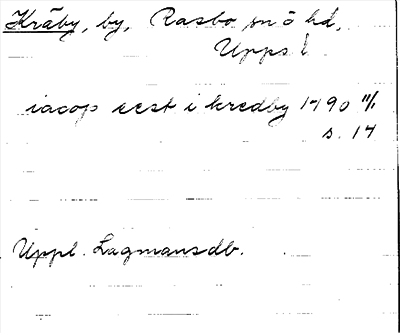 Kräby, by, Rasbo sn o hd,
Upps. l.
iacop æst i kredby 1490 11/1
s. 14
Uppl. Lagmansdb.